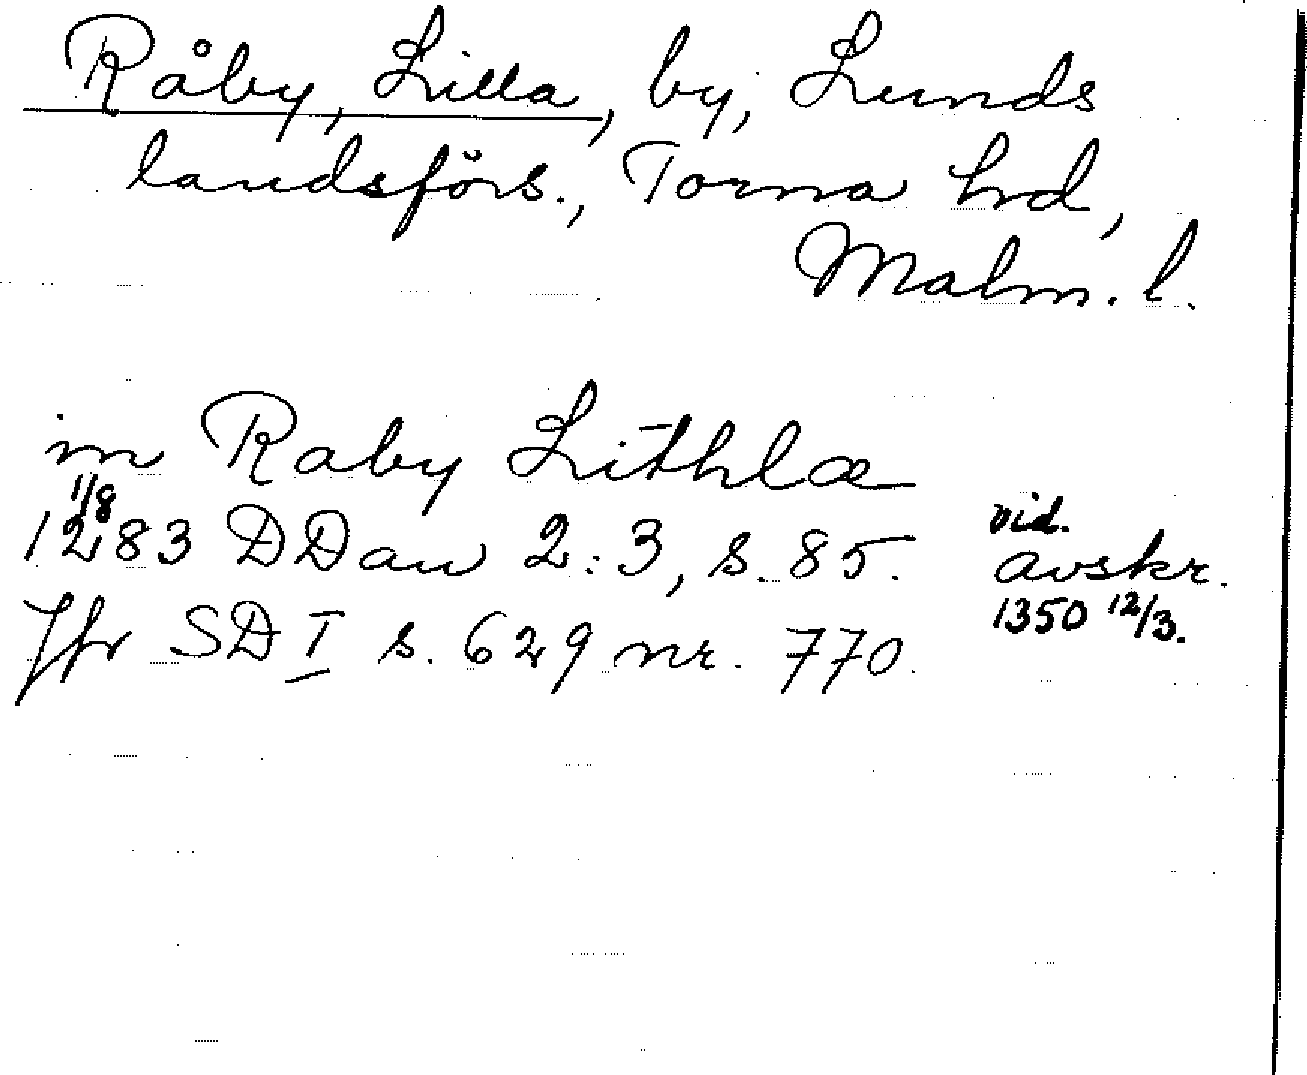 Råby, Lilla, by, Lunds
landsförs., Torna hd,
Malm. l.
in Raby Lithlæ
1/8
1283 DDan 2:3, s. 85.
vid.
avskr.
1350 12/3.
Jfr SD I s. 629 nr. 770.